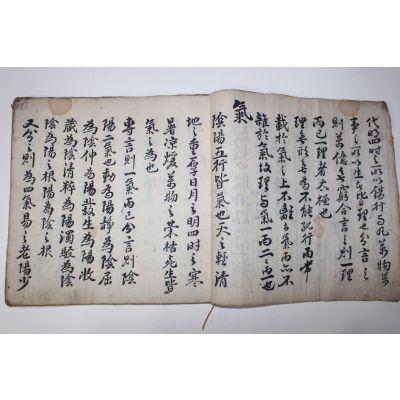 代明四時之所以錯行与凡萬物萬
事之所以生生者此理也分言之
則萬億無窮合言之則一理
而已一理者太極也
理無形無為不能行而常
載於氣之上不離於氣而亦不
雜於氣故理与氣一而二二而一也
氣
陰陽五行皆氣也天之輕清
地之重厚日月之明四時之寒
暑凉煖萬物之榮枯死生皆
氣之為也
專言則一氣而已分言則陰
陽二氣也動為陽靜為陰屈
為陰伸為陽發生為陽收
藏為陰清粹為陽濁駁為陰
陰為陽之根陽為陰之根
又分之則為四氣易之老陽少